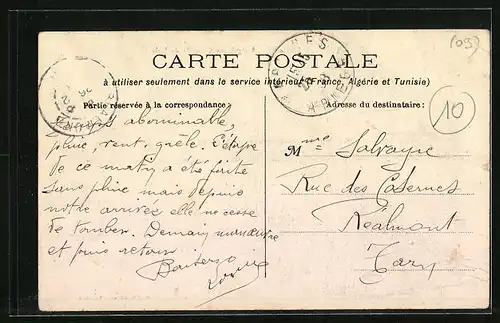 (09)
CARTE POSTALE
à utiliser seulement dans le service intérieur (France, Algérie et Tunisie)
Partie réservée à la correspondance:
Adresse du destinataire:
10
abominable,
pluie, vent, grêle. L'étape
de ce matin a été faite
sans pluie mais depuis
notre arrivée elle ne cesse
de tomber. Demain manœuvre
et puis retour
Baisers
Mme Salvayre
Rue des Casernes
Réalmont
Tarn